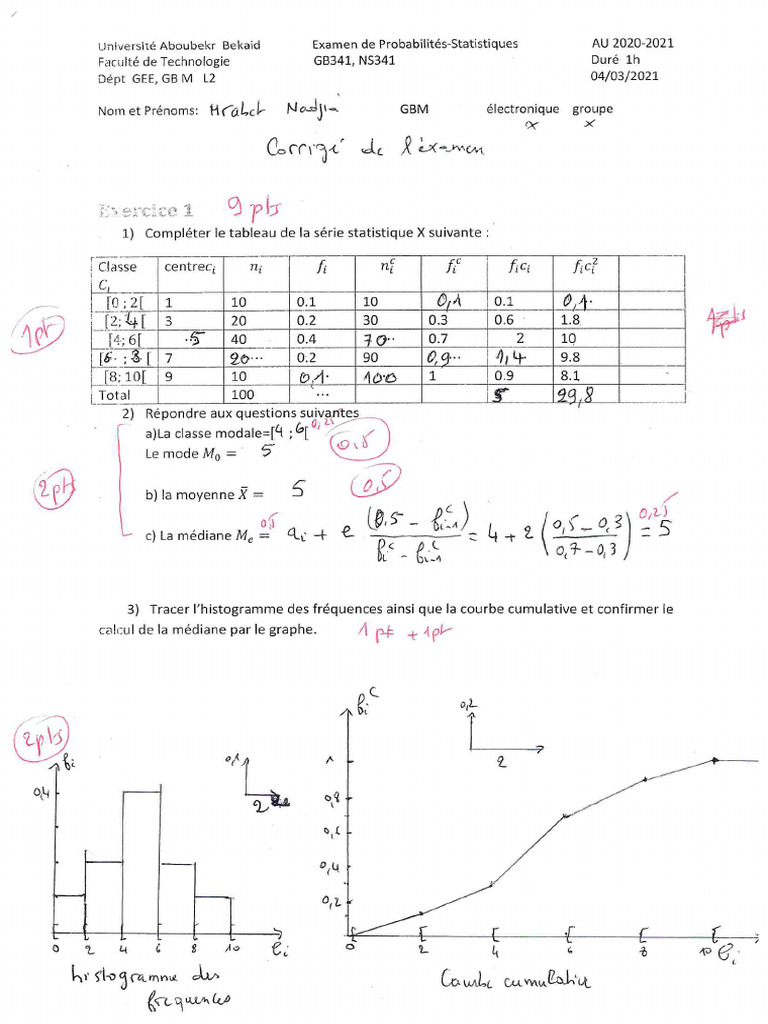 Université Aboubekr Bekaid Examen de Probabilités-Statistiques AU 2020-2021
Faculté de Technologie GB341, NS341 Duré 1h
Dépt GEE, GB M L2 04/03/2021
Nom et Prénoms: Mrabet Nadjia GBM électronique groupe
x x
Corrigé de l'examen
Exercice 1 9 pts
1) Compléter le tableau de la série statistique X suivante :
Classe C_i centre c_i n_i f_i n_i^c f_i^c f_i c_i f_i c_i^2
[0 ; 2[ 1 10 0.1 10 0,1 0.1 0,1.
[2; 4[ 3 20 0.2 30 0.3 0.6 1.8
[4; 6[ ..5 40 0.4 70.. 0.7 2 10
[6 ; 8[ 7 20... 0.2 90 0,9.. 1,4 9.8
[8; 10[ 9 10 0,1. 100 1 0.9 8.1
Total 100 ... 5 29,8
1pt
2) Répondre aux questions suivantes
a)La classe modale=[4 ; 6[ 0,25
Le mode M_0 = 5 0,5
2pts
b) la moyenne X̄ = 5 0,5
c) La médiane M_e = 0,5 a_i + e (0,5 - f_{i-1}^c) / (f_i^c - f_{i-1}^c) = 4 + 2 ( (0,5 - 0,3) / (0,7 - 0,3) ) = 5 0,25
3) Tracer l'histogramme des fréquences ainsi que la courbe cumulative et confirmer le
calcul de la médiane par le graphe. 1 pt + 1pt
2pts
f_i
0,1
2
0,4
0 2 4 6 8 10 C_i
histogramme des
fréquences
f_i^c
0,2
2
1
0,8
0,6
0,4
0,2
0 2 4 6 8 10 C_i
Courbe cumulative